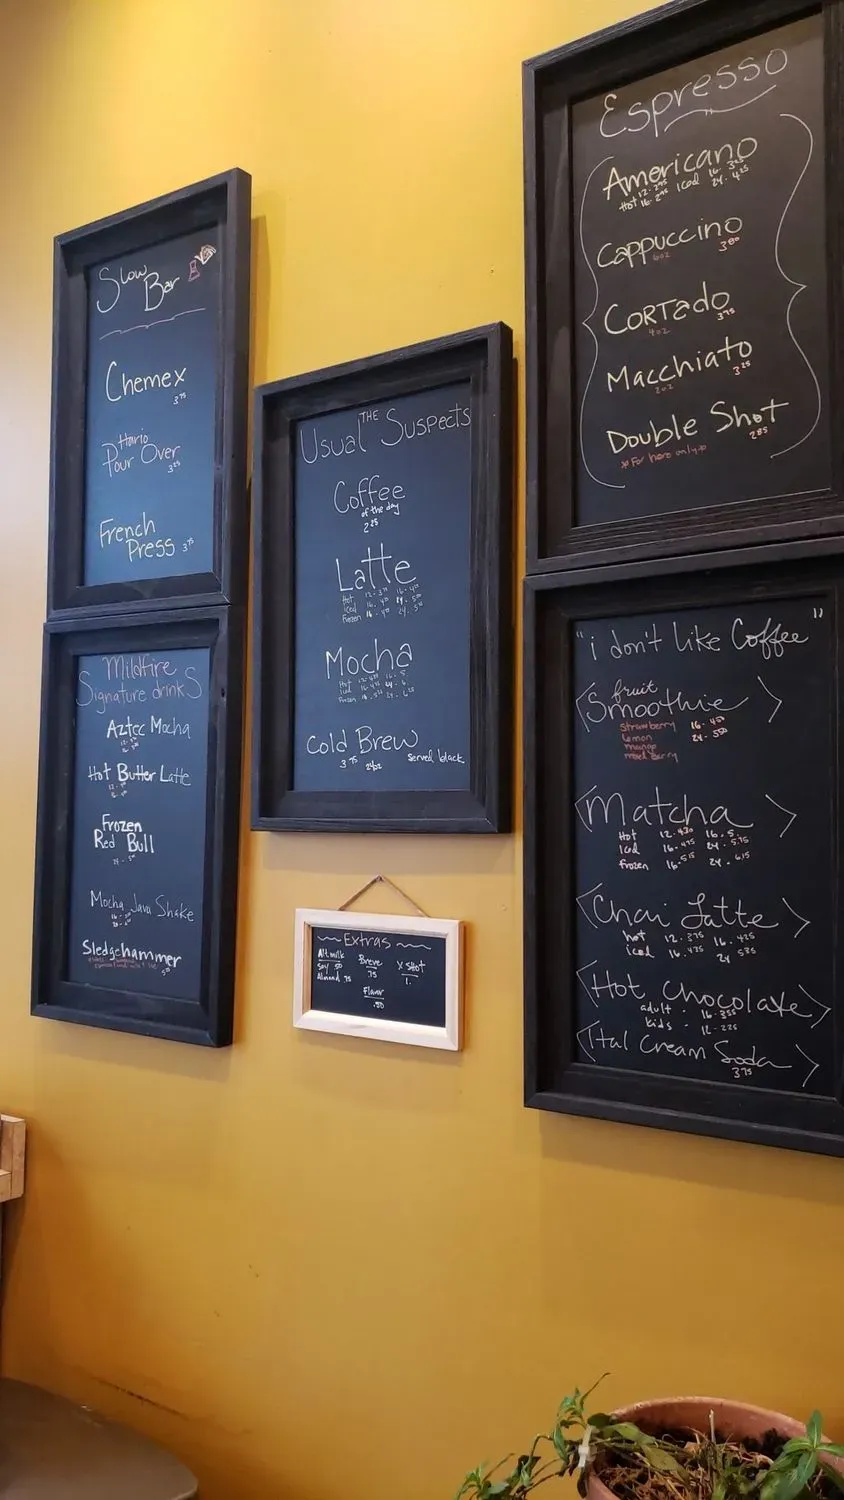 Slow
Bar
Chemex
3 75
Hario
Pour Over
3 25
French
Press 3 75
Mildfire
Signature drinks
Aztec Mocha
Hot Butter Latte
Frozen
Red Bull
Mocha Java Shake
Sledgehammer
THE
Usual Suspects
Coffee
of the day
2 25
Latte
Hot
Iced
Frozen
Mocha
Hot
Iced
Frozen
Cold Brew
3 75 24oz served black
Extras
Alt milk
Soy .50
Almond .75
Breve
.75
X Shot
1.
Flavor
.50
Espresso
Americano
Hot 12. 2 45 Iced 16. 3 25
16. 2 95 24. 4 25
Cappuccino
6oz 3 80
Cortado
4oz 3 75
Macchiato
2oz 3 25
Double Shot
2 85
*For here only*
"i don't like Coffee"
fruit
Smoothie
strawberry 16. 4 50
lemon 24. 5 50
mango
mixed berry
Matcha
Hot 12. 4 30 16. 5.
Iced 16. 4 75 24. 5.75
frozen 16. 5 15 24. 6.15
Chai Latte
hot 12. 3 75 16. 4 25
iced 16. 4 35 24 5 35
Hot Chocolate
adult . 16. 3 35
kids . 12. 2 25
Ital Cream Soda
3 75